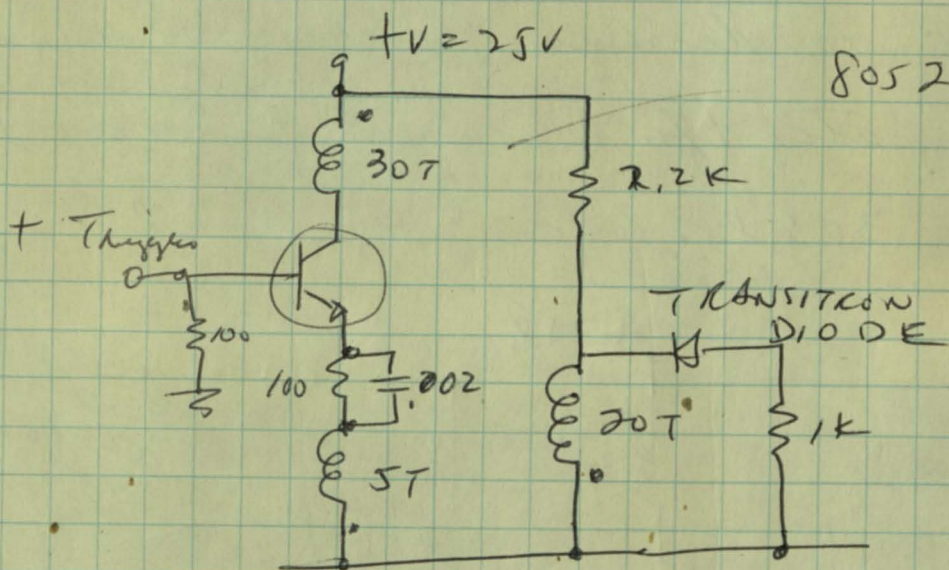 +V = 25V
8052
30T
2.2K
+ Trigger
TRANSITRON
DIODE
100
100
.002
20T
1K
5T